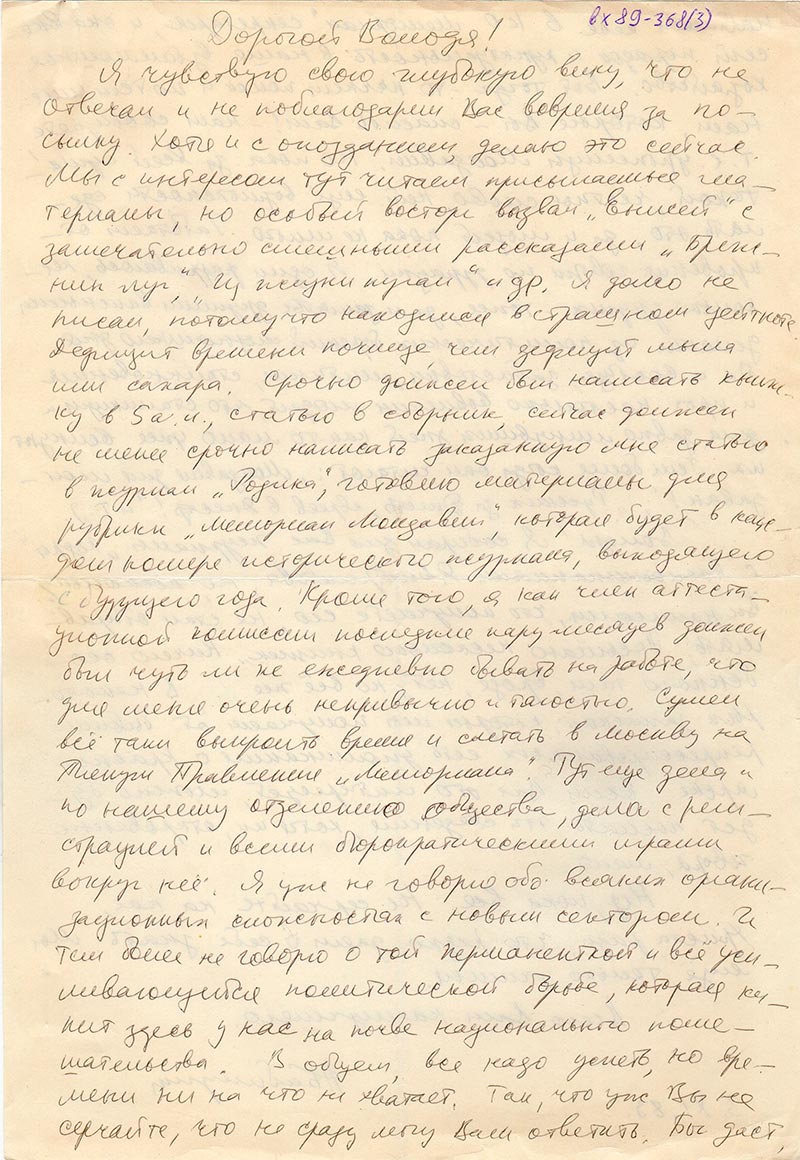 вх 89-368(3)
Дорогой Володя!
Я чувствую свою глубокую вину, что не
отвечал и не поблагодарил Вас вовремя за по-
сылку. Хотя и с опозданием, делаю это сейчас.
Мы с интересом тут читаем присылаемые ма-
териалы, но особый восторг вызвал „Енисей" с
замечательно смешными рассказами „Бреж-
нин луг", "Из жизни пугал" и др. Я долго не
писал, потому что находился в страшном цейтноте.
Дефицит времени почище, чем дефицит мыла
или сахара. Срочно должен был написать книж-
ку в 5 а.л., статью в сборник, сейчас должен
не менее срочно написать заказанную мне статью
в журнал „Родина", готовлю материалы для
рубрики „Мемориал Молдавии", которая будет в каж-
дом номере исторического журнала, выходящего
с будущего года. Кроме того, я как член аттеста-
ционной комиссии последние пару месяцев должен
был чуть ли не ежедневно бывать на работе, что
для меня очень непривычно и тягостно. Сумел
всё таки выкроить время и слетать в Москву на
Пленум Правления „Мемориала". Тут еще дела и
по нашему отделению общества, дела с реги-
страцией и всеми бюрократическими играми
вокруг неё. Я уж не говорю обо всяких органи-
зационных сложностях с новым сектором. И
тем более не говорю о той перманентной и всё уси-
ливающейся политической борьбе, которая ки-
пит здесь у нас на почве национального поме-
шательства. В общем, все надо успеть, но вре-
мени ни на что не хватает. Так, что уж Вы не
серчайте, что не сразу могу Вам ответить. Бог даст,